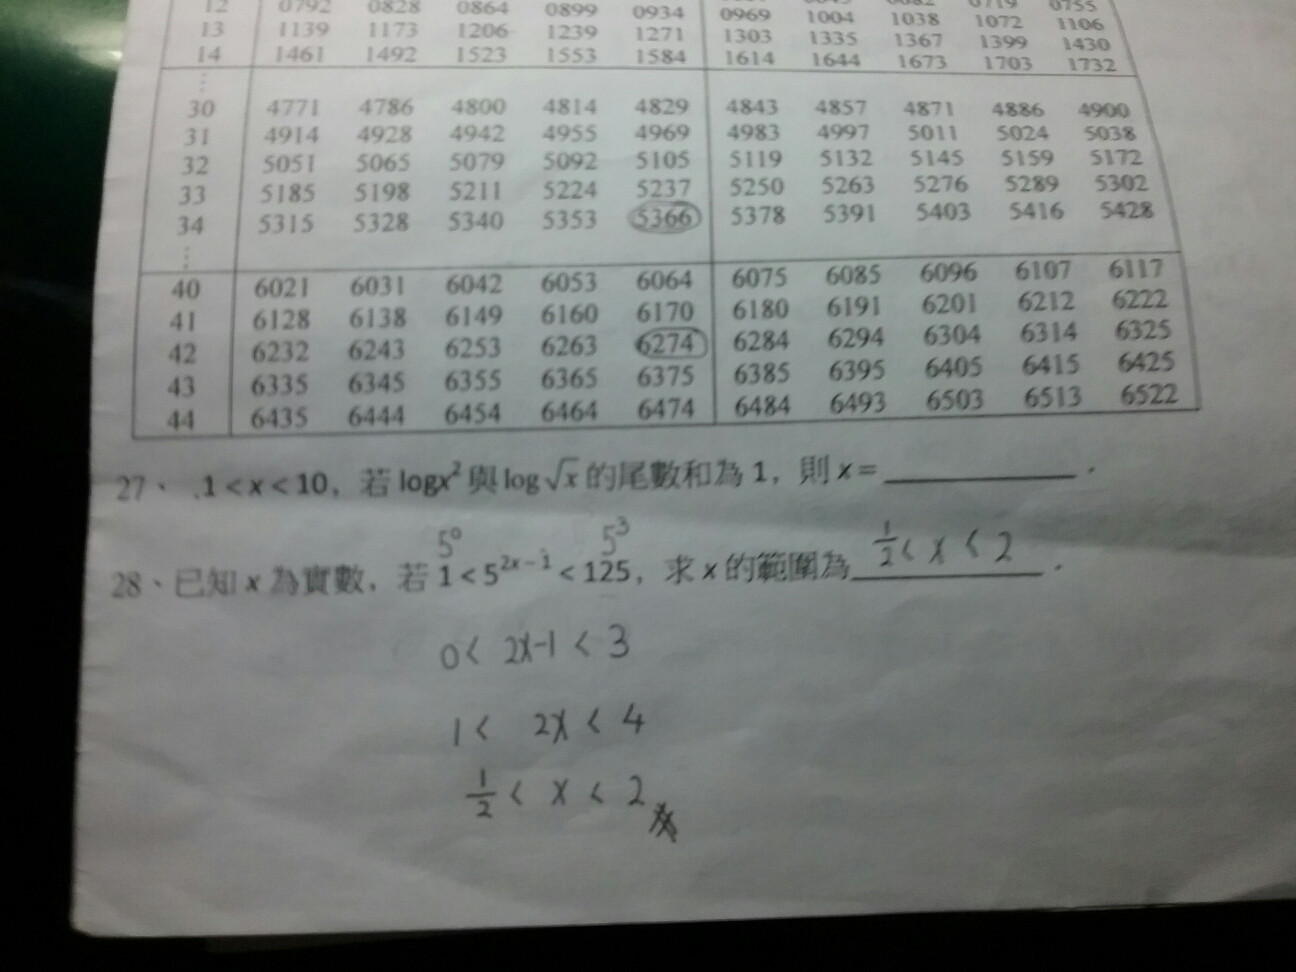 12 0792 0828 0864 0899 0934 0969 1004 1038 1072 1106
13 1139 1173 1206 1239 1271 1303 1335 1367 1399 1430
14 1461 1492 1523 1553 1584 1614 1644 1673 1703 1732
⋮
30 4771 4786 4800 4814 4829 4843 4857 4871 4886 4900
31 4914 4928 4942 4955 4969 4983 4997 5011 5024 5038
32 5051 5065 5079 5092 5105 5119 5132 5145 5159 5172
33 5185 5198 5211 5224 5237 5250 5263 5276 5289 5302
34 5315 5328 5340 5353 5366 5378 5391 5403 5416 5428
⋮
40 6021 6031 6042 6053 6064 6075 6085 6096 6107 6117
41 6128 6138 6149 6160 6170 6180 6191 6201 6212 6222
42 6232 6243 6253 6263 6274 6284 6294 6304 6314 6325
43 6335 6345 6355 6365 6375 6385 6395 6405 6415 6425
44 6435 6444 6454 6464 6474 6484 6493 6503 6513 6522
27、.1<x<10，若 logx² 與 log√x 的尾數和為 1，則 x=________.
5⁰ 5³
28、已知 x 為實數，若 1<5^(2x-1)<125，求 x 的範圍為 1/2 < x < 2.
0 < 2x-1 < 3
1 < 2x < 4
1/2 < x < 2